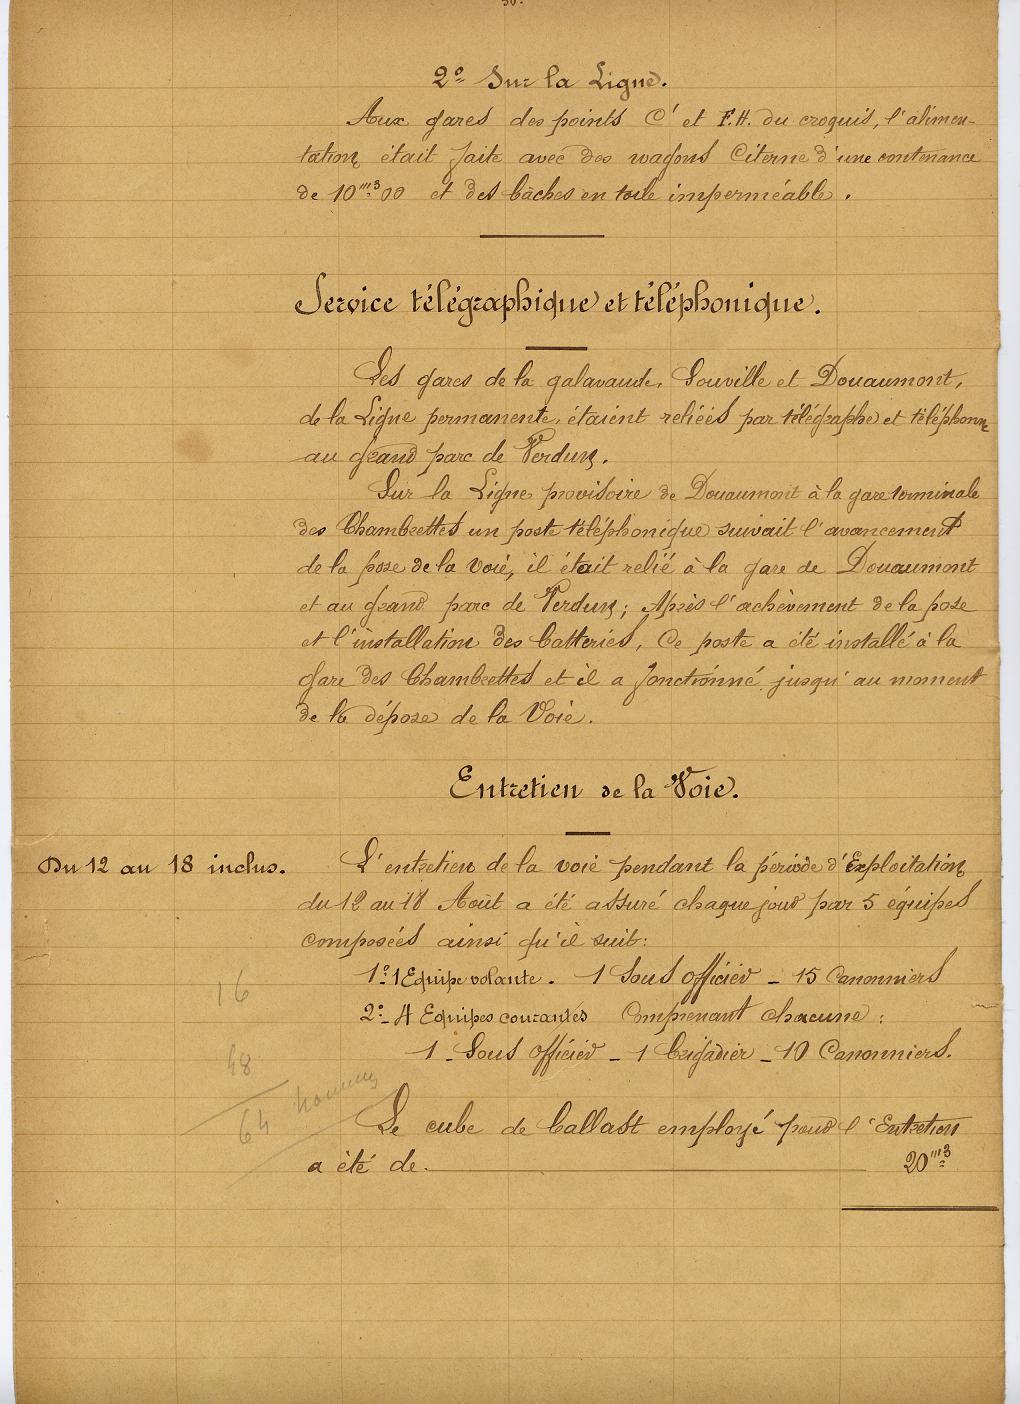 30.
2º Sur la Ligne.
Aux gares des points C' et F.H. du croquis, l'alimen-
tation était faite avec des wagons Citerne d'une contenance
de 10m3 00 et des bâches en toile imperméable.
Service télégraphique et téléphonique.
Les gares de la galavaude, Souville et Douaumont,
de la Ligne permanente, étaient reliées par télégraphe et téléphone
au grand parc de Verdun.
Sur la Ligne provisoire de Douaumont à la gare terminale
des Chambrettes un poste téléphonique suivait l'avancement
de la pose de la voie, il était relié à la gare de Douaumont
et au grand parc de Verdun; Après l'achèvement de la pose
et l'installation des batteries, Ce poste a été installé à la
gare des Chambrettes et il a fonctionné jusqu'au moment
de la dépose de la Voie.
Entretien de la Voie.
Du 12 au 18 inclus.
L'entretien de la voie pendant la période d'Exploitation
du 12 au 18 Août a été assuré chaque jour par 5 équipes
composées ainsi qu'il suit:
1º 1 Equipe volante. 1 Sous Officier - 15 Canonniers
2º- 4 Equipes courantes Comprenant chacune:
1 - Sous Officier - 1 Brigadier - 10 Canonniers.
16
48
64 hommes
Le cube de ballast employé pour l'Entretien
a été de 20m3